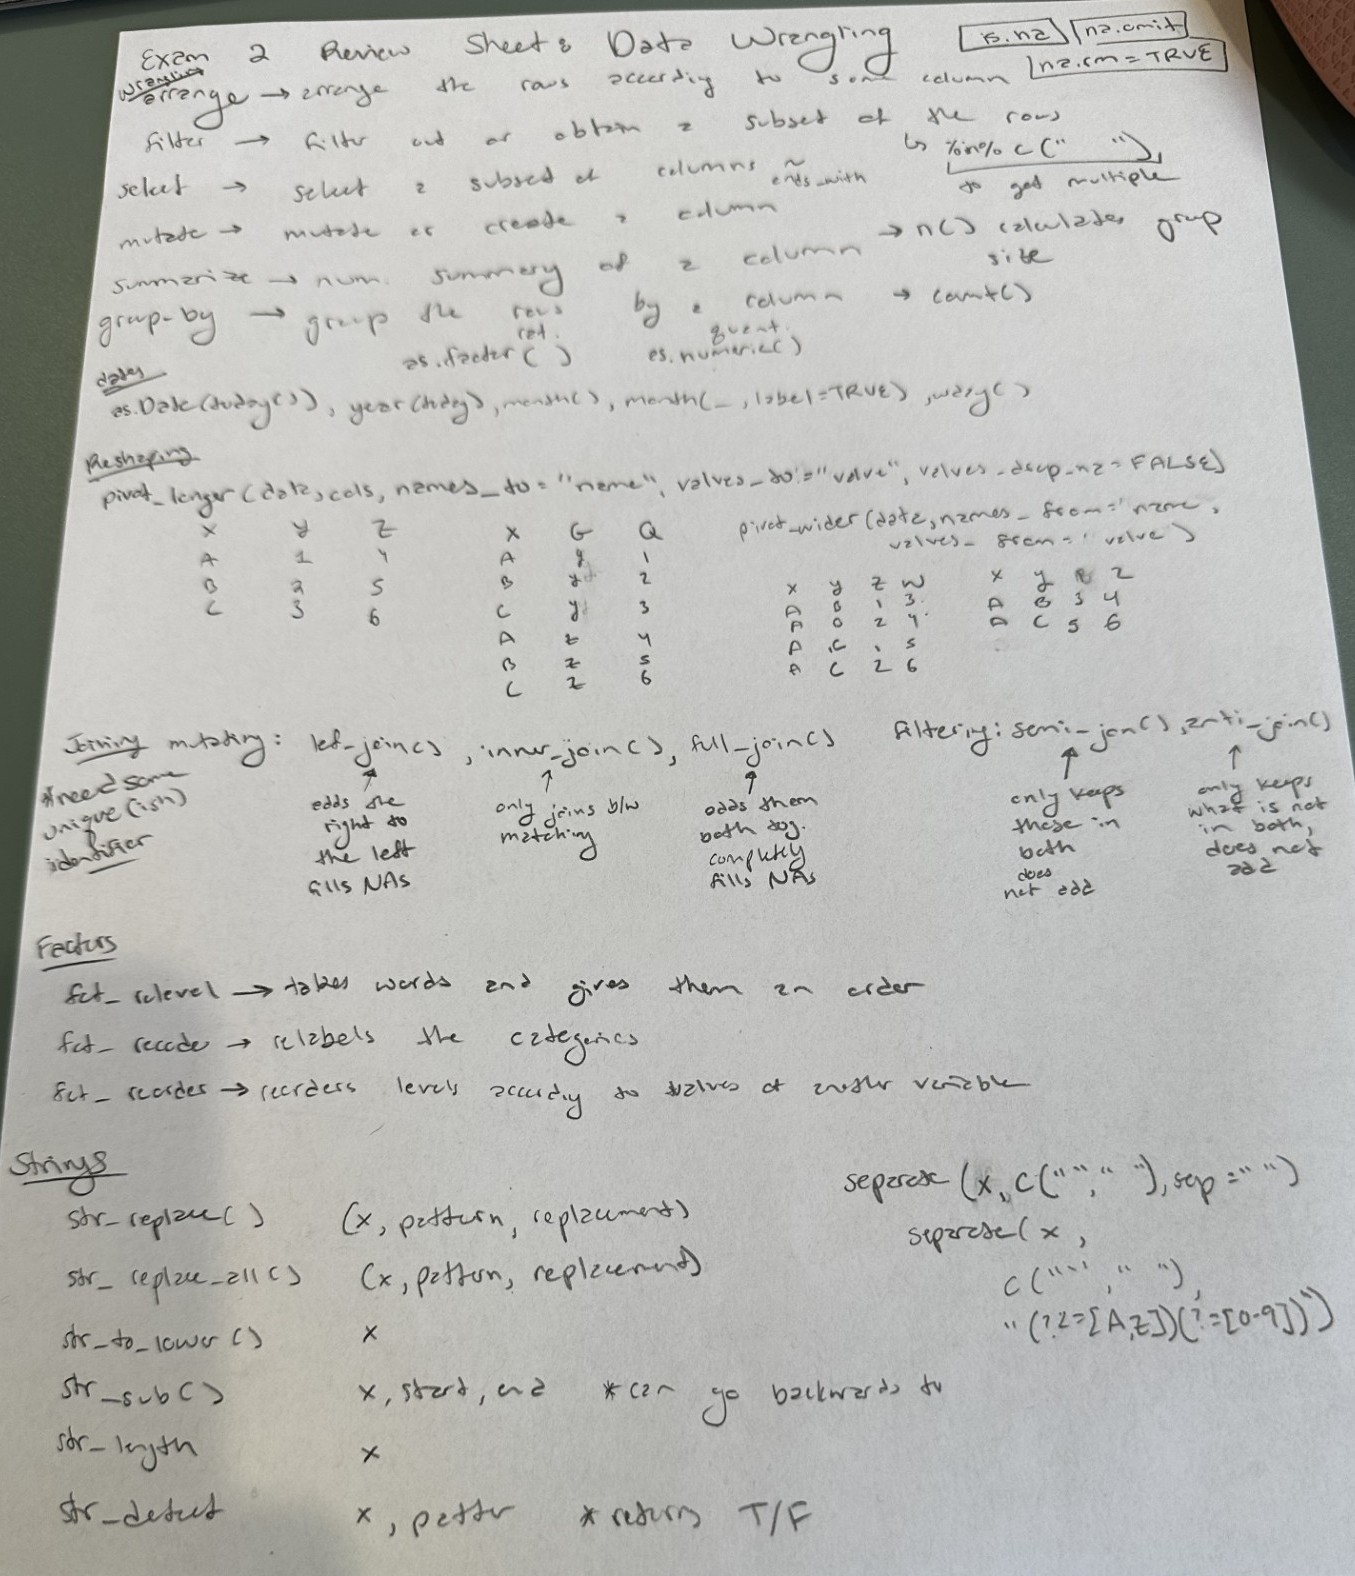 Exam 2 Review Sheet: Data Wrangling
is.na | na.omit
na.rm = TRUE
Wrangling
arrange → arrange the rows according to some column
filter → filter out or obtain a subset of the rows
↳ %in% c(" "),
to get multiple
select → select a subset of columns ~
ends_with
mutate → mutate or create a column
summarize → num. summary of a column → n() calculates group
size
group-by → group the rows by a column → count()
cat.
as.factor( )
quant.
as.numeric()
dates
as.Date(today()), year(today), month(), month(_, label=TRUE), wday()
Reshaping
pivot_longer(data, cols, names_to = "name", values_to = "value", values_drop_na = FALSE)
X y Z
A 1 4
B 2 5
C 3 6
X G Q
A y 1
B y 2
C y 3
A z 4
B z 5
C z 6
pivot_wider(data, names_from = 'name,
values_from = 'value)
X y z w
A B 1 3
A B 2 4
A C 1 5
A C 2 6
X y 1 2
A B 3 4
A C 5 6
Joining mutating: left_join(), inner_join(), full_join()
filtering: semi_join(), anti_join()
*need some
unique(ish)
identifier
adds the
right to
the left
fills NAs
only joins b/w
matching
adds them
both tog.
completely
fills NAs
only keeps
those in
both
does
not add
only keeps
what is not
in both,
does not
add
Factors
fct_relevel → takes words and gives them an order
fct_recode → relabels the categories
fct_reorder → reorders levels according to values of another variable
Strings
str_replace() (x, pattern, replacement)
str_replace_all() (x, pattern, replacement)
str_to_lower() x
str_sub() x, start, end *can go backwards to
str_length x
str_detect x, patter *returns T/F
separate (x, c("", " "), sep = " ")
separate( x,
c("", " "),
"(?<=[A,Z])(?=[0-9])")